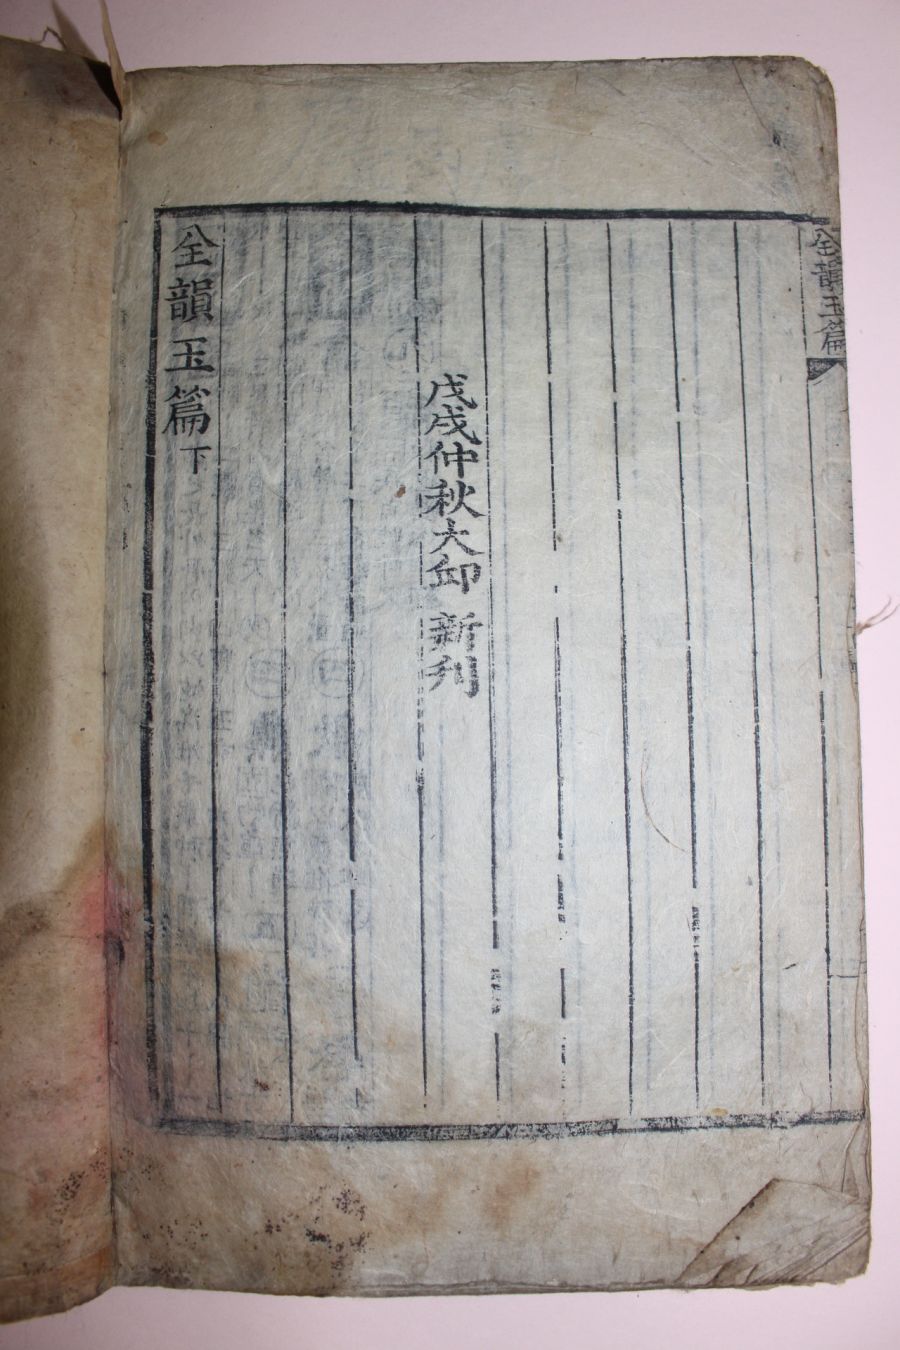 全韻玉篇
戊戌仲秋大邱新刋
全韻玉篇下